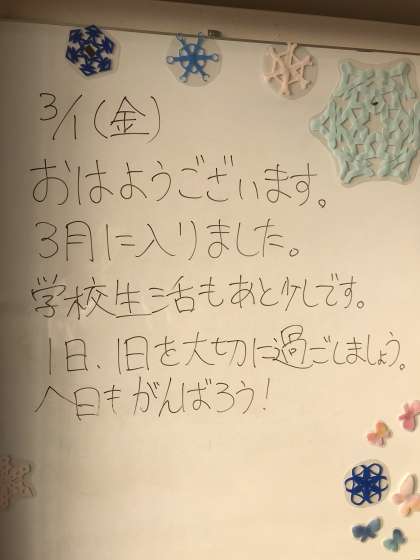 3/1(金)
おはようございます。
3月に入りました。
学校生活もあと少しです。
1日、1日を大切に過ごしましょう。
今日もがんばろう!